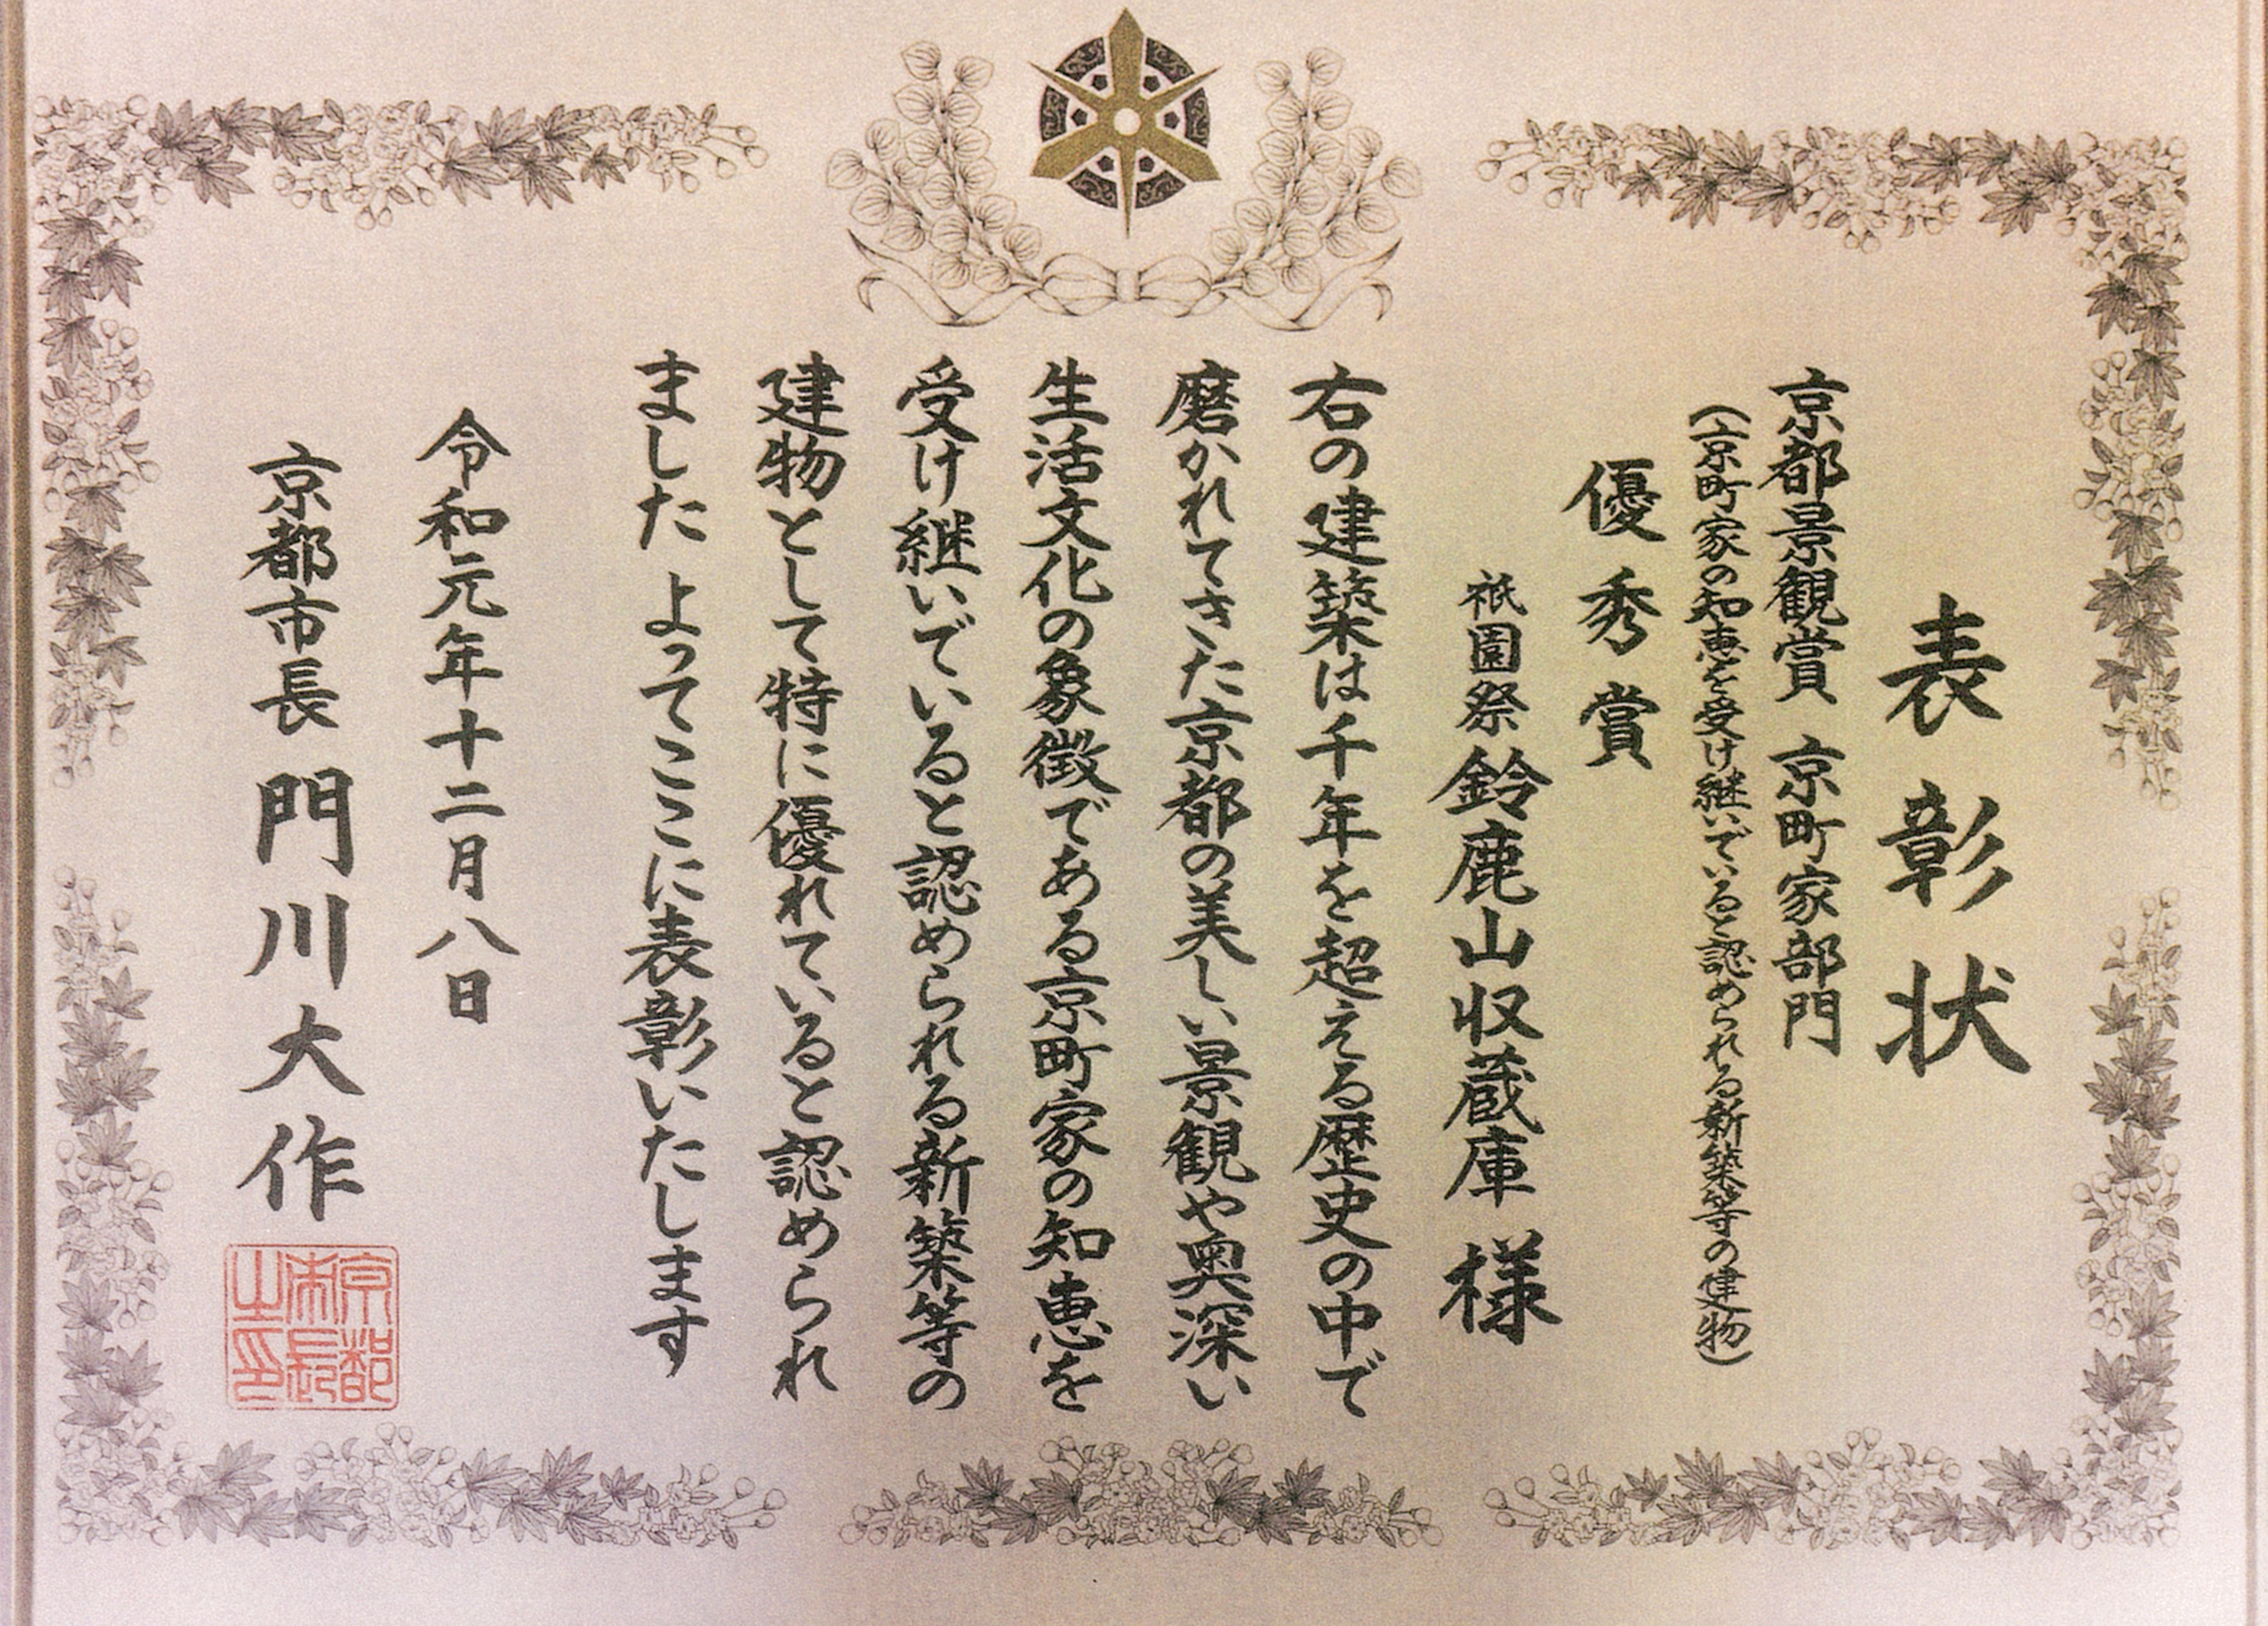 表彰状
京都景観賞 京町家部門
(京町家の知恵を受け継いでいると認められる新築等の建物)
優秀賞
祇園祭鈴鹿山収蔵庫 様
右の建築は千年を超える歴史の中で
磨かれてきた京都の美しい景観や奥深い
生活文化の象徴である京町家の知恵を
受け継いでいると認められる新築等の
建物として特に優れていると認められ
ました よってここに表彰いたします
令和元年十二月八日
京都市長 門川大作
京都市長之印